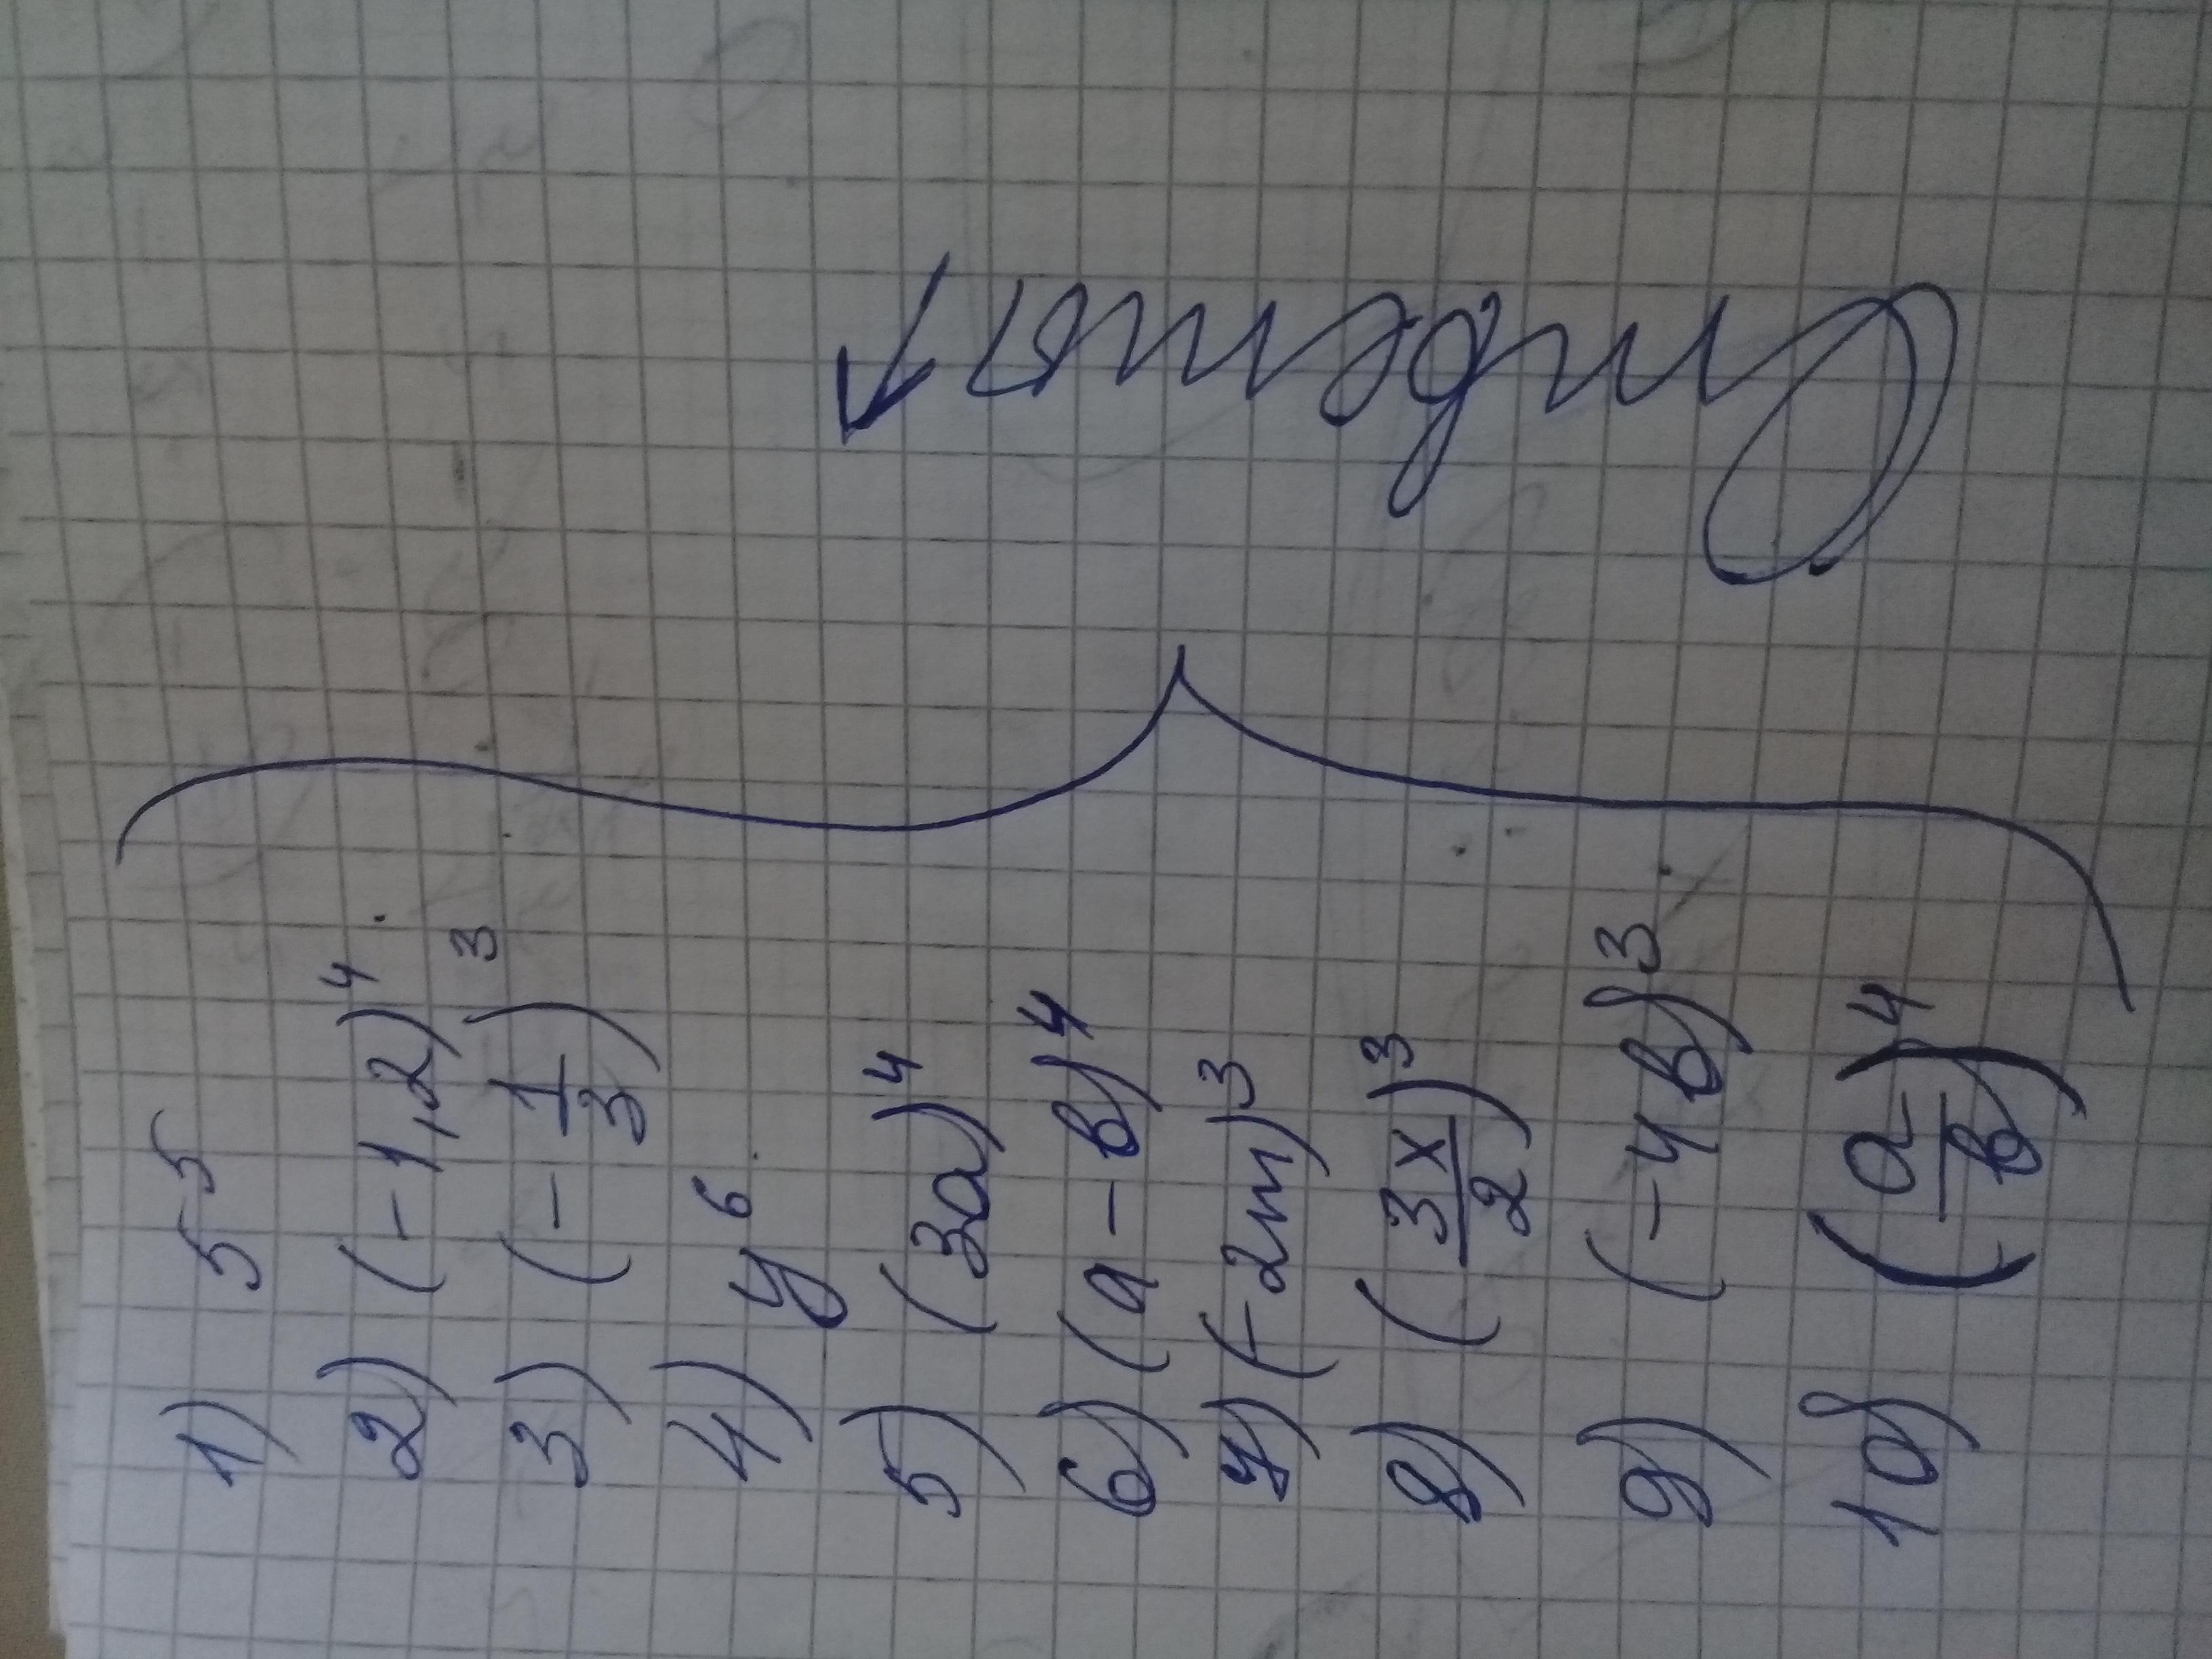 1) 5⁵
2) (-1,2)⁴
3) (-1/3)³
4) y⁶
5) (3a)⁴
6) (a-b)⁴
7) (-2m)³
8) (3x/2)³
9) (-4b)³
10) (a/b)⁴
Ответы